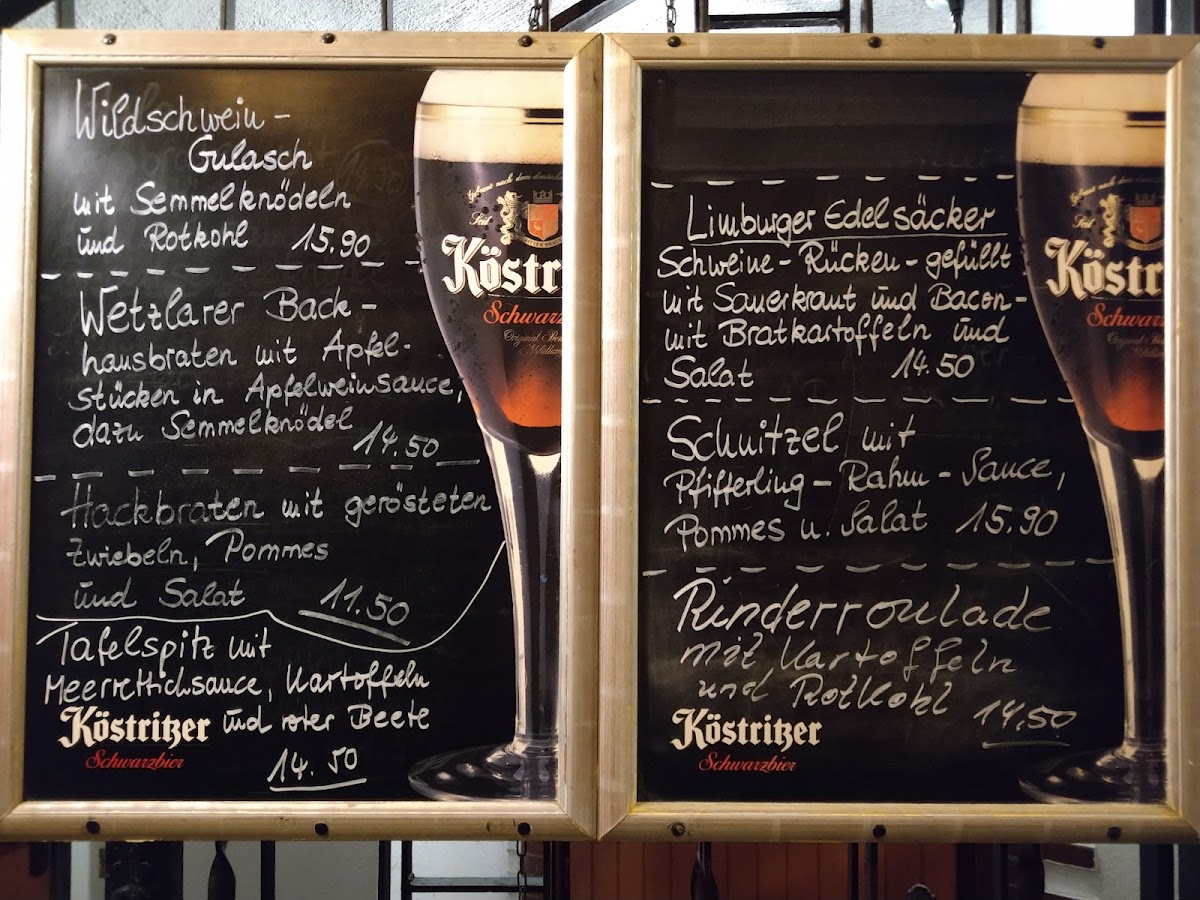 Wildschwein-
Gulasch
mit Semmelknödeln
und Rotkohl 15.90
Wetzlarer Back-
hausbraten mit Apfel-
stücken in Apfelweinsauce,
dazu Semmelknödel
14.50
Hackbraten mit gerösteten
Zwiebeln, Pommes
und Salat 11.50
Tafelspitz mit
Meerrettichsauce, Kartoffeln
und roter Beete
14.50
Köstritzer
Schwarzbier
Seit
Köstri
Schwarz
Limburger Edelsäcker
Schweine-Rücken-gefüllt
mit Sauerkraut und Bacon-
mit Bratkartoffeln und
Salat 14.50
Schnitzel mit
Pfifferling-Rahm-Sauce,
Pommes u. Salat 15.90
Rinderroulade
mit Kartoffeln
und Rotkohl
14.50
Köstritzer
Schwarzbier
Seit
Köstri
Schwarz